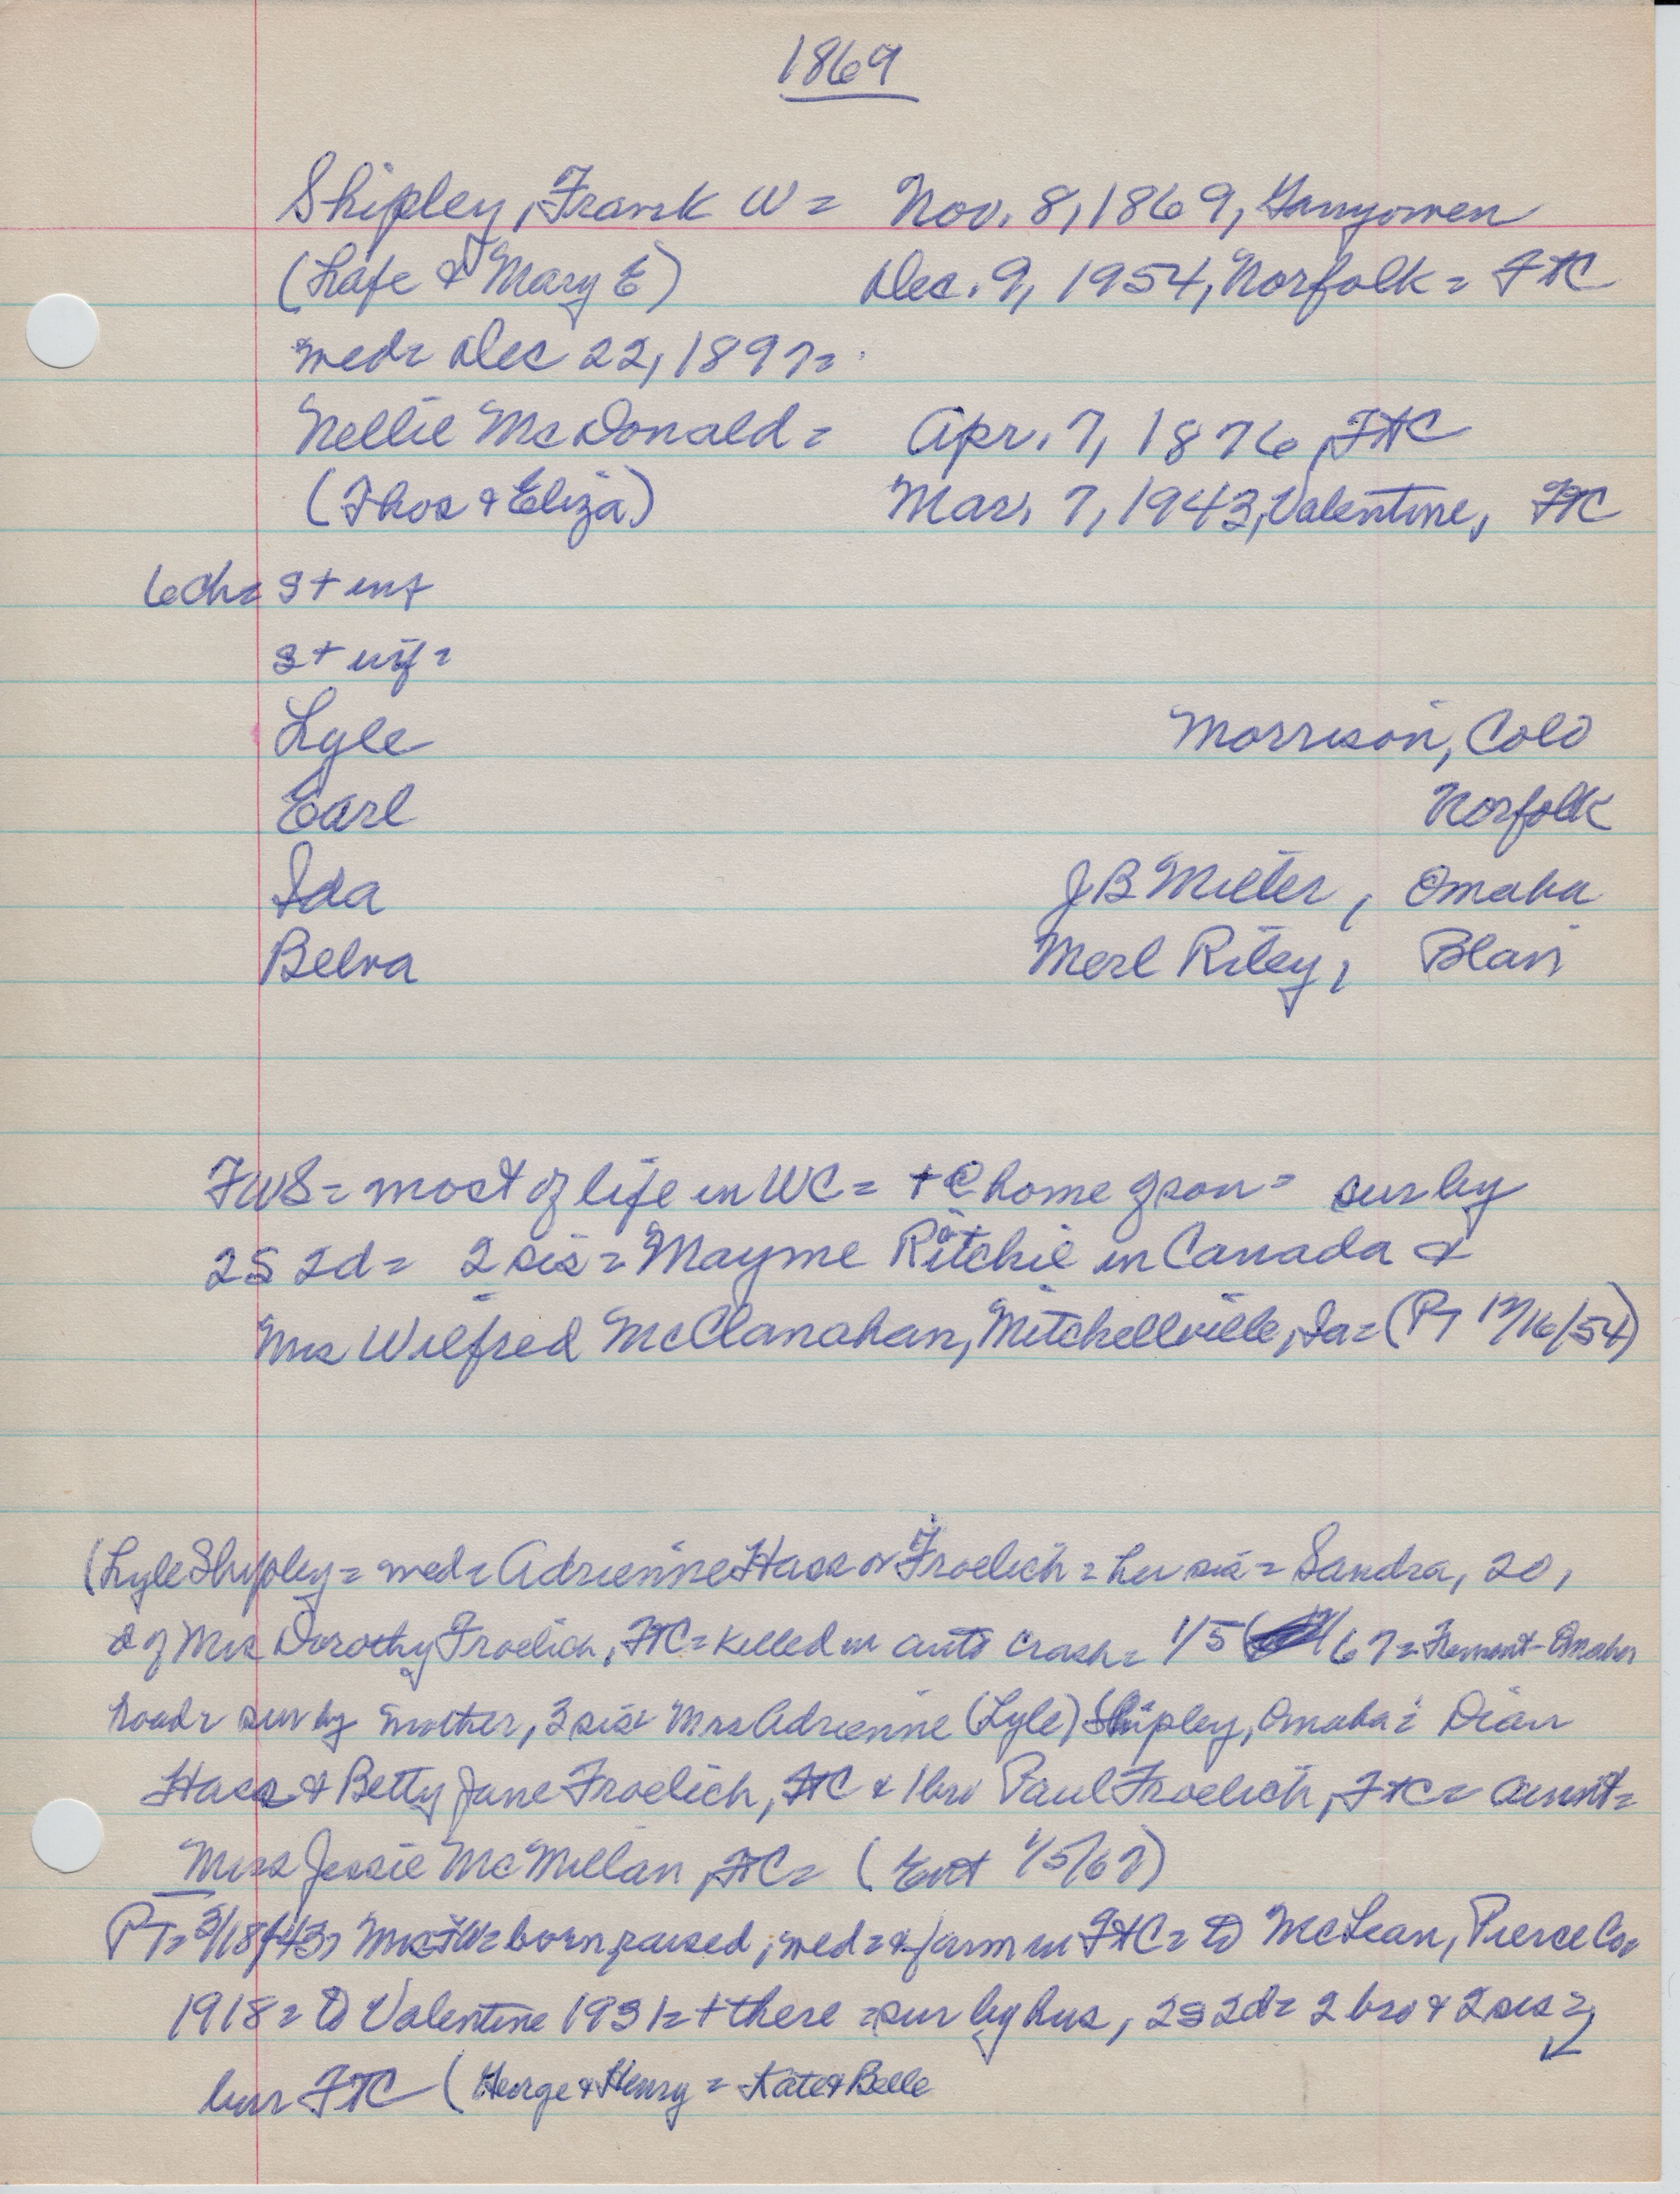 1869
Shipley, Frank W = Nov. 8, 1869, Garryowen
(Lafe & Mary E) Dec. 9, 1954, Norfolk = FTC
wed= Dec 22, 1897=
Nellie McDonald = Apr. 7, 1876, FTC
(Thos & Eliza) Mar. 7, 1943, Valentine, FTC
6ch= s+ inf
s+ inf =
Lyle Morrison, Colo
Earl Norfolk
Ida J B Miller, Omaha
Belva Merl Riley, Blair
FWS = most of life in WC = + @ home of son = sur by
2s 2d = 2 sis = Mayme Ritchie in Canada &
Mrs Wilfred McClanahan, Mitchellville, Ia= (PT 12/16/54)
(Lyle Shipley = wed= Adrienne Hass or Froelich = her sis = Sandra, 20,
d of Mrs Dorothy Froelich, FTC= killed in auto crash = 1/5 /67 = Fremont-Omaha
road= sur by mother, 3 sis= Mrs Adrienne (Lyle) Shipley, Omaha = Dian
Hass & Betty Jane Froelich, FTC & 1 bro Paul Froelich, FTC = aunt=
Miss Jessie McMillan, FTC= (Ent 1/5/67)
PT= 3/18/43= Mrs FW= born, raised, wed= & farm in FTC= to McLean, Pierce Co,
1918= to Valentine 1931= + there = sur by hus, 2s 2d= 2 bro & 2 sis =
bur FTC (George & Henry = Kate & Belle